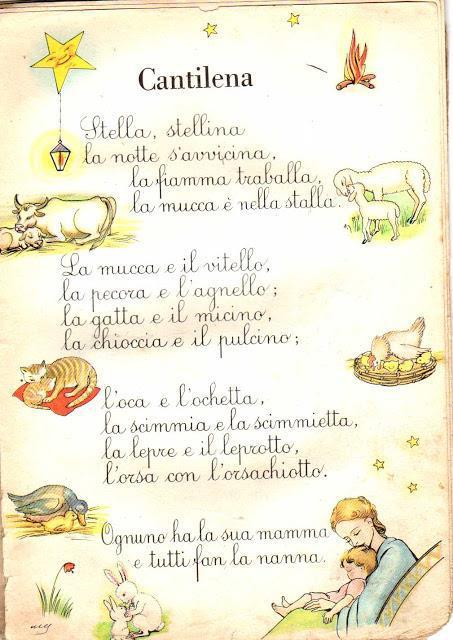 Cantilena
Stella, stellina
la notte s'avvicina,
la fiamma traballa,
la mucca è nella stalla.
La mucca e il vitello,
la pecora e l'agnello;
la gatta e il micino,
la chioccia e il pulcino;
l'oca e l'ochetta,
la scimmia e la scimmietta,
la lepre e il leprotto,
l'orsa con l'orsachiotto.
Ognuno ha la sua mamma
e tutti fan la nanna.